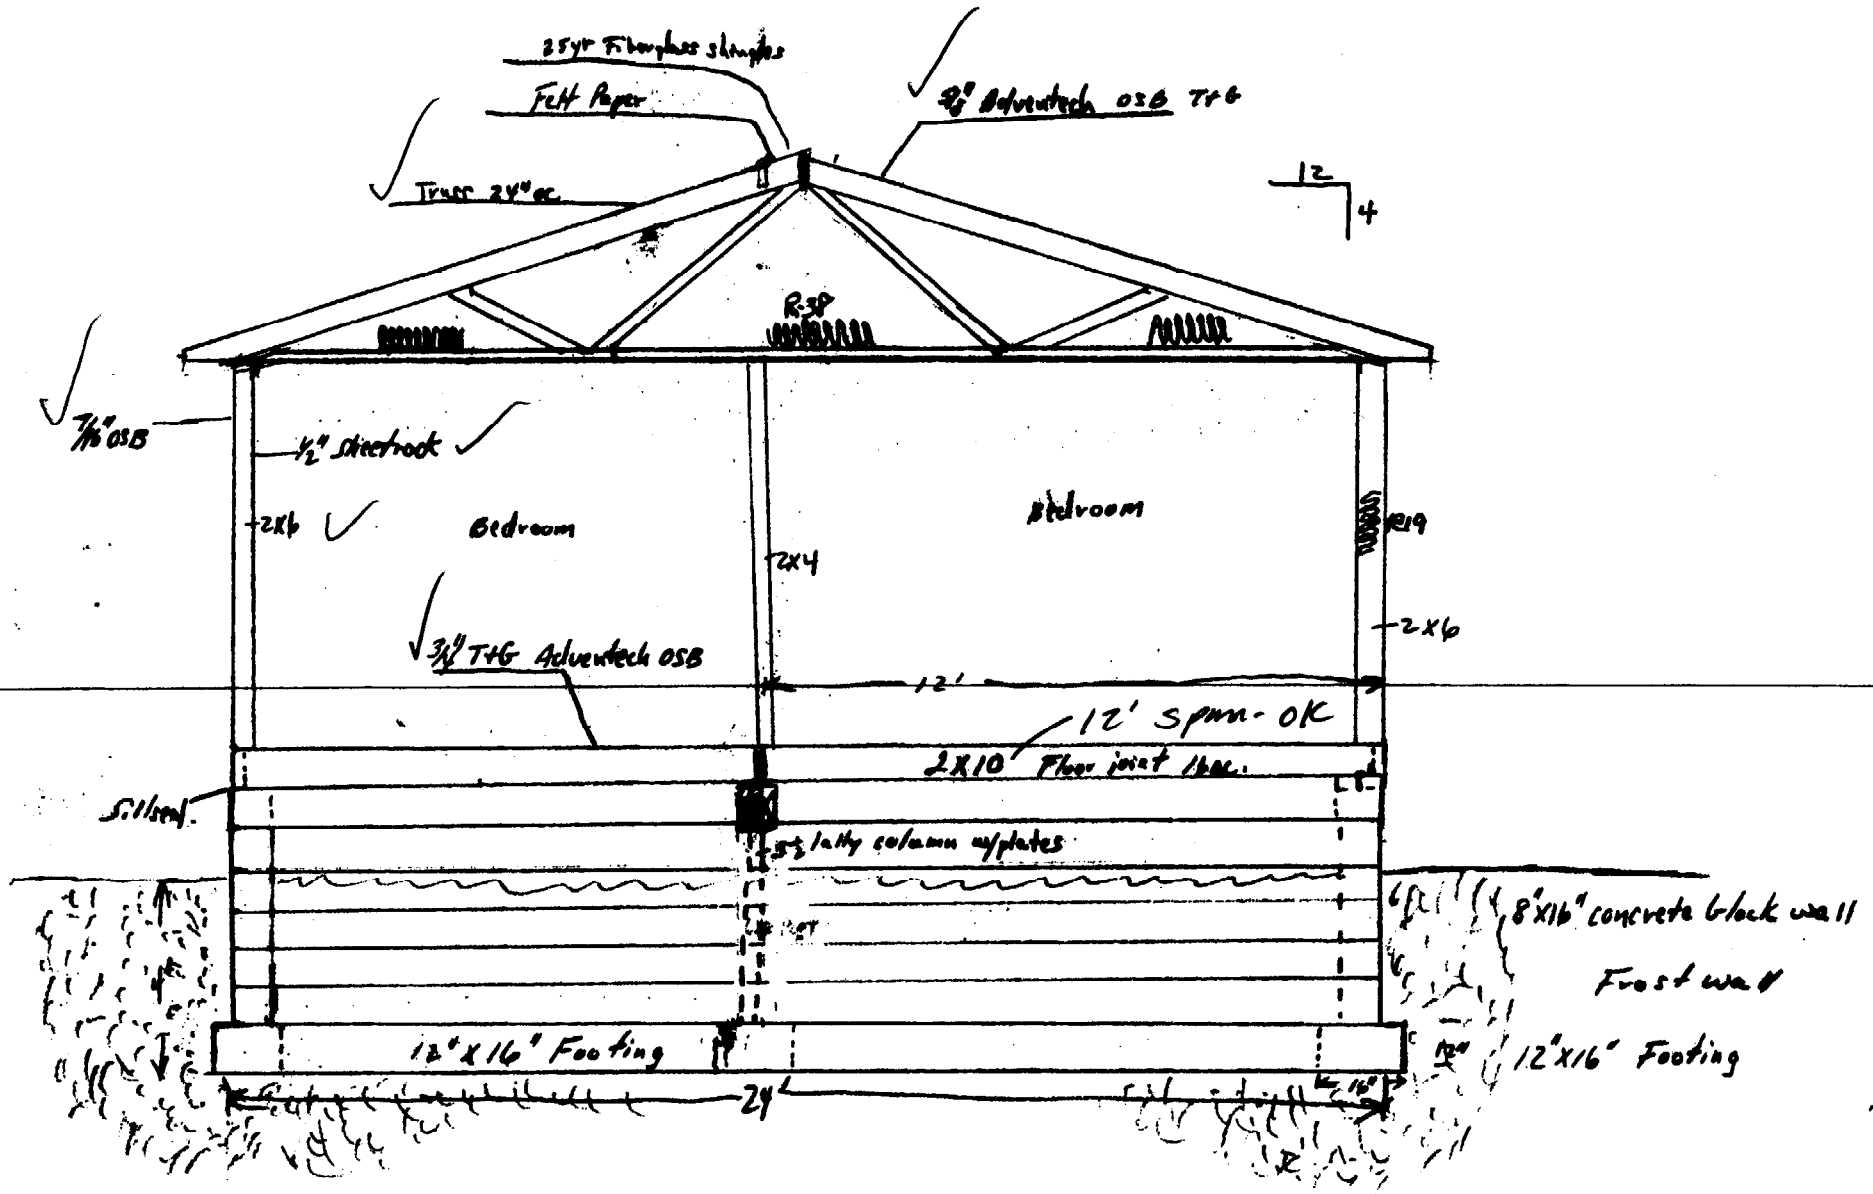 25yr Fiberglass shingles
Felt Paper
5/8" Adventech OSB T+G
Truss 24" oc.
12
4
R-38
7/16" OSB
1/2" Sheetrock
2x6
Bedroom
Bedroom
R19
2x4
2x6
3/4" T+G Adventech OSB
12'
12' span - OK
2x10 Floor joist 16 oc.
Sillseal.
3 1/2 lally column w/plates
8"x16" concrete block wall
Frost wall
4'
12" x 16" Footing
12"
12"x16" Footing
16"
24'